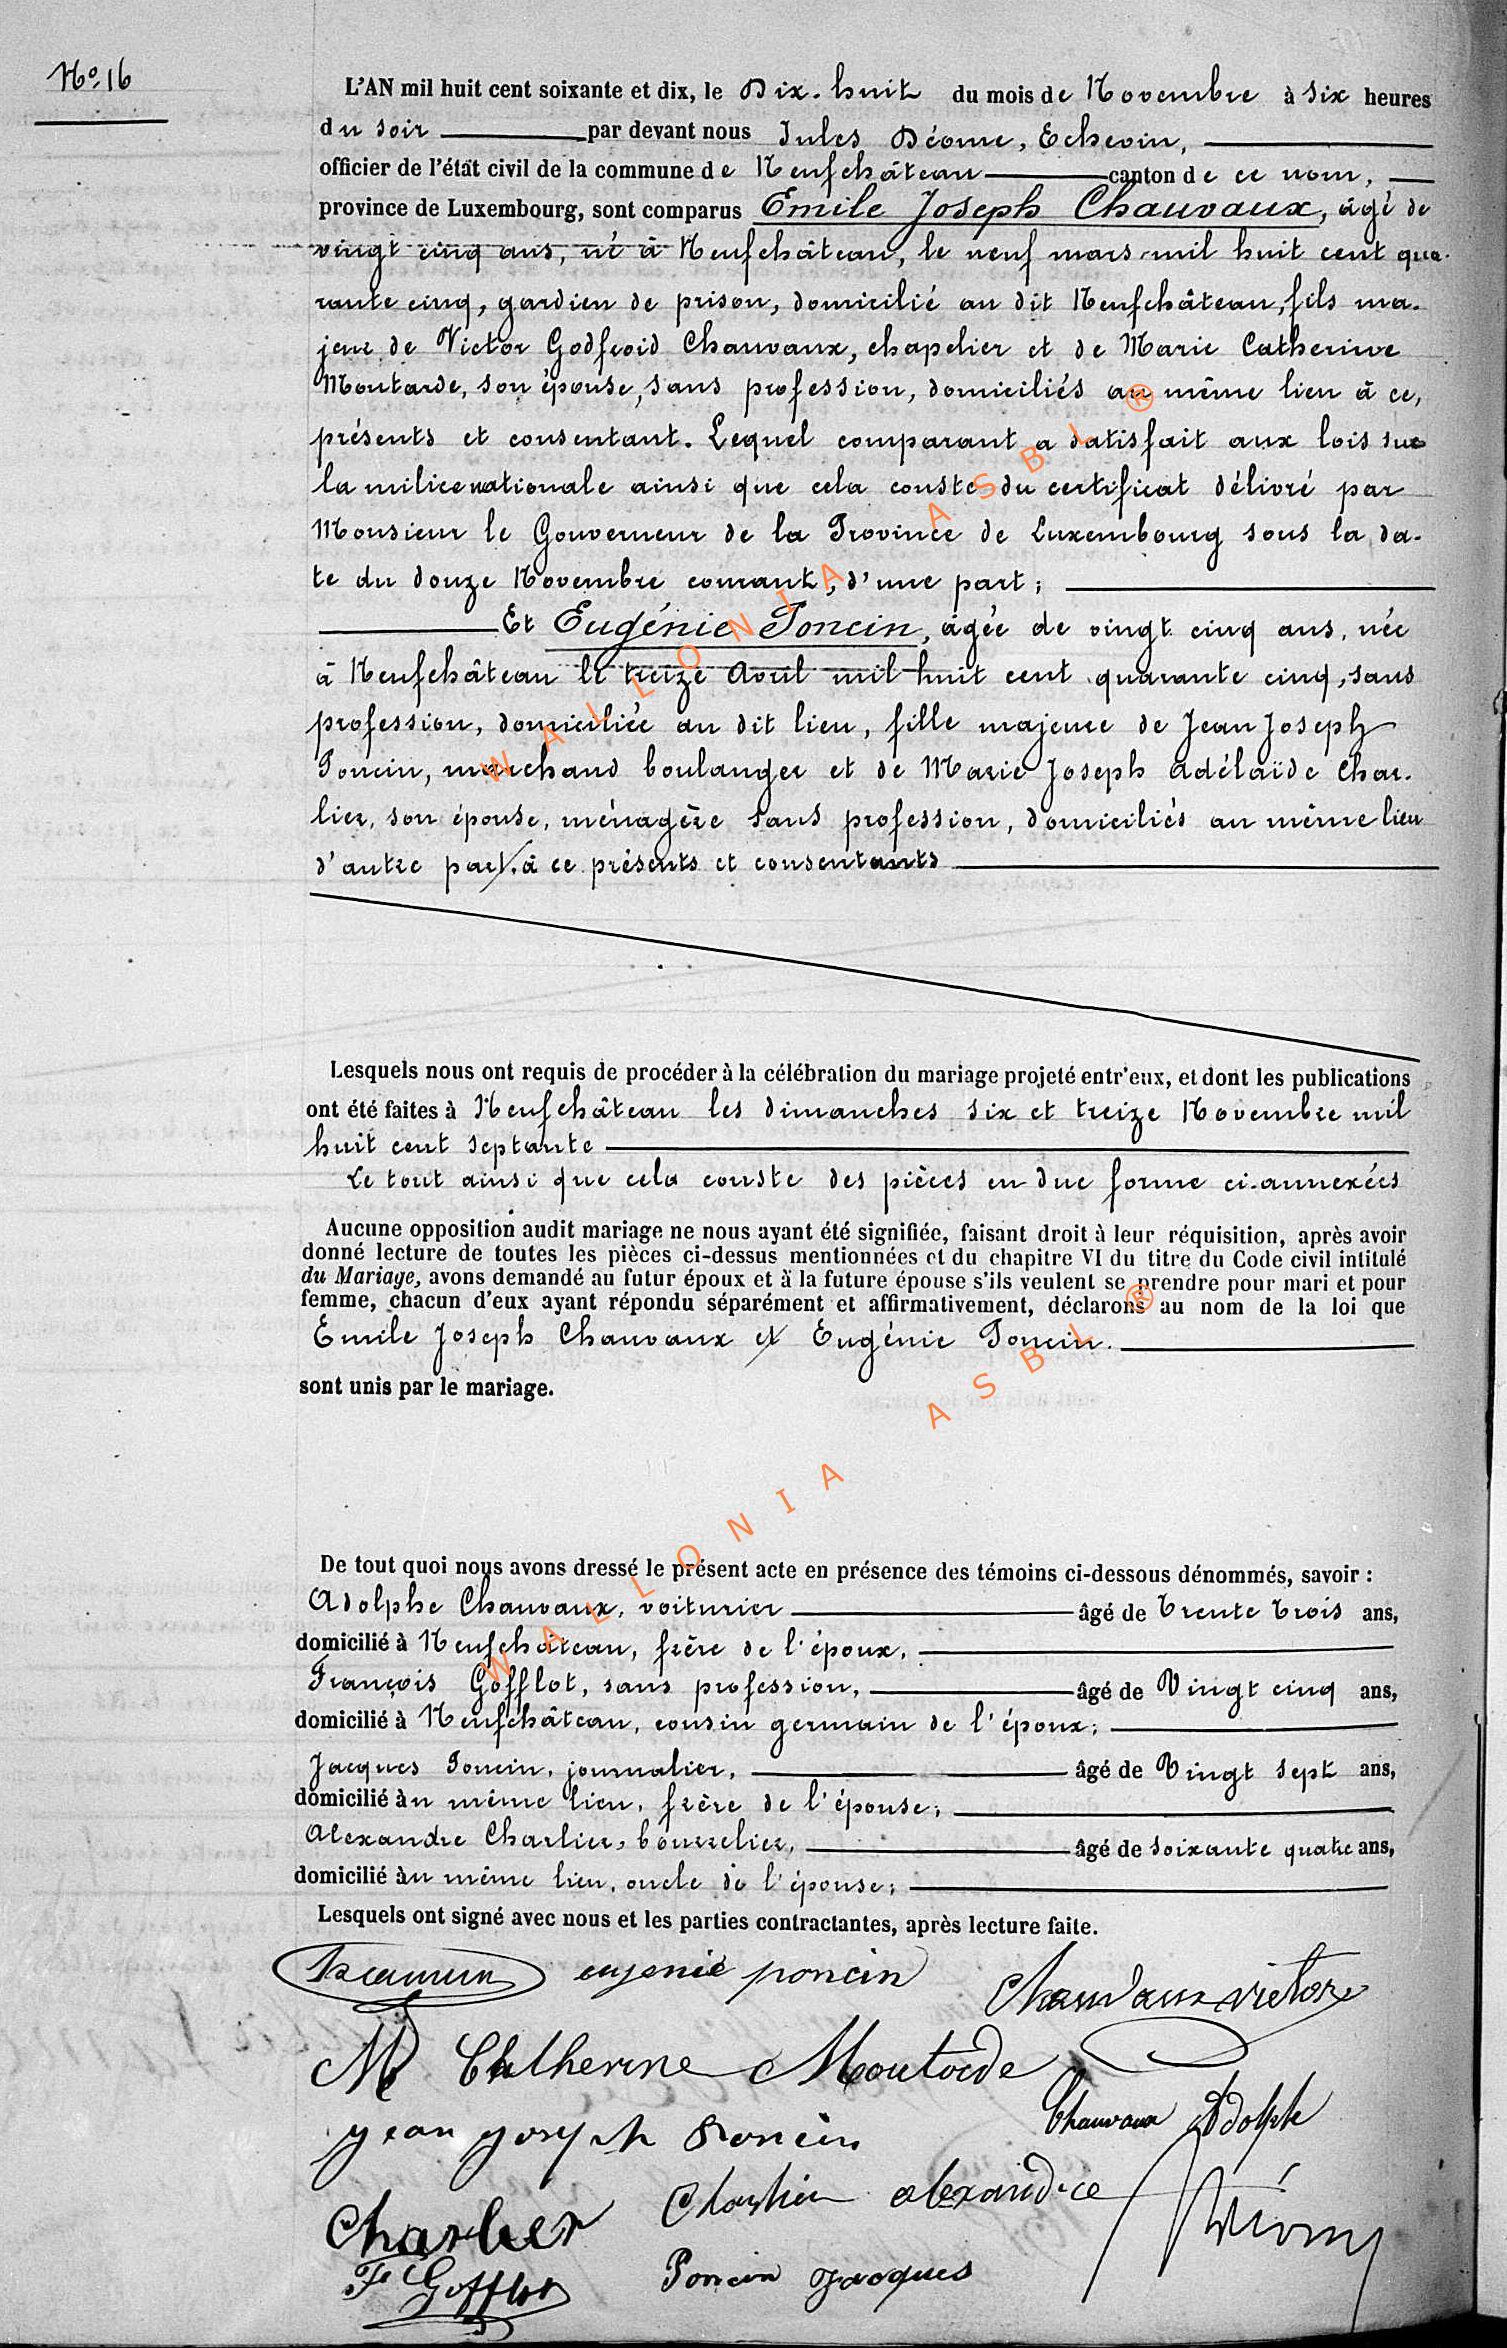 No. 16
L'AN mil huit cent soixante et dix, le Dix-huit du mois de Novembre à six heures
du soir par devant nous Jules Déome, Echevin,
officier de l'état civil de la commune de Neufchâteau canton de ce nom,
province de Luxembourg, sont comparus Emile Joseph Chauvaux, âgé de
vingt cinq ans, né à Neufchâteau, le neuf mars mil huit cent qua-
rante cinq, gardien de prison, domicilié au dit Neufchâteau, fils ma-
jeur de Victor Godfroid Chauvaux, chapelier et de Marie Catherine
Moutarde, son épouse, sans profession, domiciliés au même lieu à ce,
présents et consentant. Lequel comparant a satisfait aux lois sur
la milice nationale ainsi que cela conste du certificat délivré par
Monsieur le Gouverneur de la Province de Luxembourg sous la da-
te du douze Novembre courant, d'une part;
Et Eugénie Poncin, âgée de vingt cinq ans, née
à Neufchâteau le treize Avril mil huit cent quarante cinq, sans
profession, domiciliée au dit lieu, fille majeure de Jean Joseph
Poncin, marchand boulanger et de Marie Joseph Adélaïde Char-
lier, son épouse, ménagère sans profession, domiciliés au même lieu
d'autre part. à ce présents et consentants
Lesquels nous ont requis de procéder à la célébration du mariage projeté entr'eux, et dont les publications
ont été faites à Neufchâteau les dimanches six et treize Novembre mil
huit cent septante
Le tout ainsi que cela conste des pièces en due forme ci-annexées
Aucune opposition audit mariage ne nous ayant été signifiée, faisant droit à leur réquisition, après avoir
donné lecture de toutes les pièces ci-dessus mentionnées et du chapitre VI du titre du Code civil intitulé
du Mariage, avons demandé au futur époux et à la future épouse s'ils veulent se prendre pour mari et pour
femme, chacun d'eux ayant répondu séparément et affirmativement, déclarons au nom de la loi que
Emile Joseph Chauvaux et Eugénie Poncin.
sont unis par le mariage.
De tout quoi nous avons dressé le présent acte en présence des témoins ci-dessous dénommés, savoir :
Adolphe Chauvaux, voiturier âgé de Trente trois ans,
domicilié à Neufchâteau, frère de l'époux,
François Gofflot, sans profession, âgé de Vingt cinq ans,
domicilié à Neufchâteau, cousin germain de l'époux;
Jacques Poncin, journalier, âgé de Vingt sept ans,
domicilié au même lieu, frère de l'épouse;
Alexandre Charlier, bourrelier, âgé de soixante quatre ans,
domicilié au même lieu, oncle de l'épouse;
Lesquels ont signé avec nous et les parties contractantes, après lecture faite.
eugenie poncin
Chauvaux victor
M Catherine Moutarde
Chauvaux Adolphe
jean joseph Poncin
Charlier alexandre
Charlier
F Gofflot
Poncin jacques
WALLONIA ASBL ®
WALLONIA ASBL ®